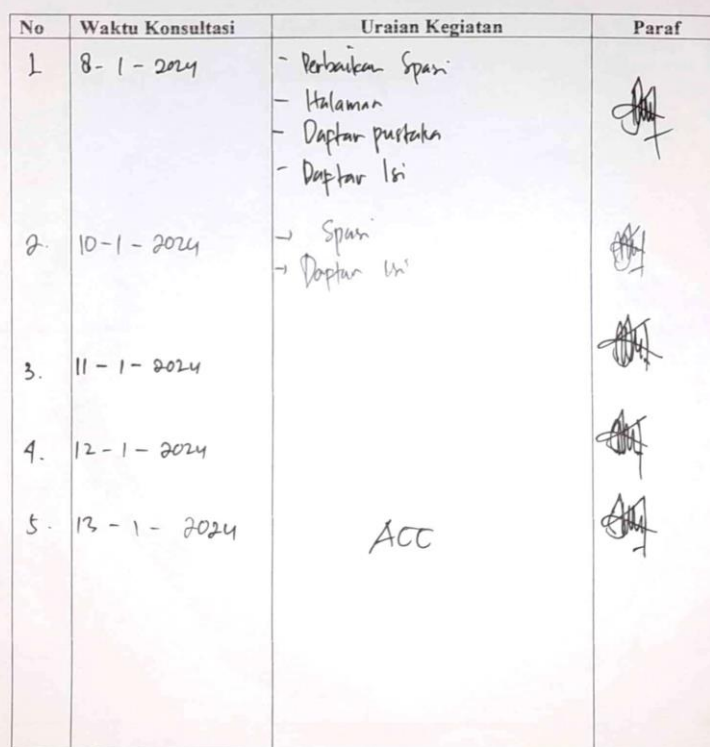 No Waktu Konsultasi Uraian Kegiatan Paraf
1 8-1-2024 - Perbaikan Spasi
- Halaman
- Daftar pustaka
- Daftar Isi
2. 10-1-2024 → Spasi
→ Daftar isi
3. 11-1-2024
4. 12-1-2024
5. 13-1-2024 ACC